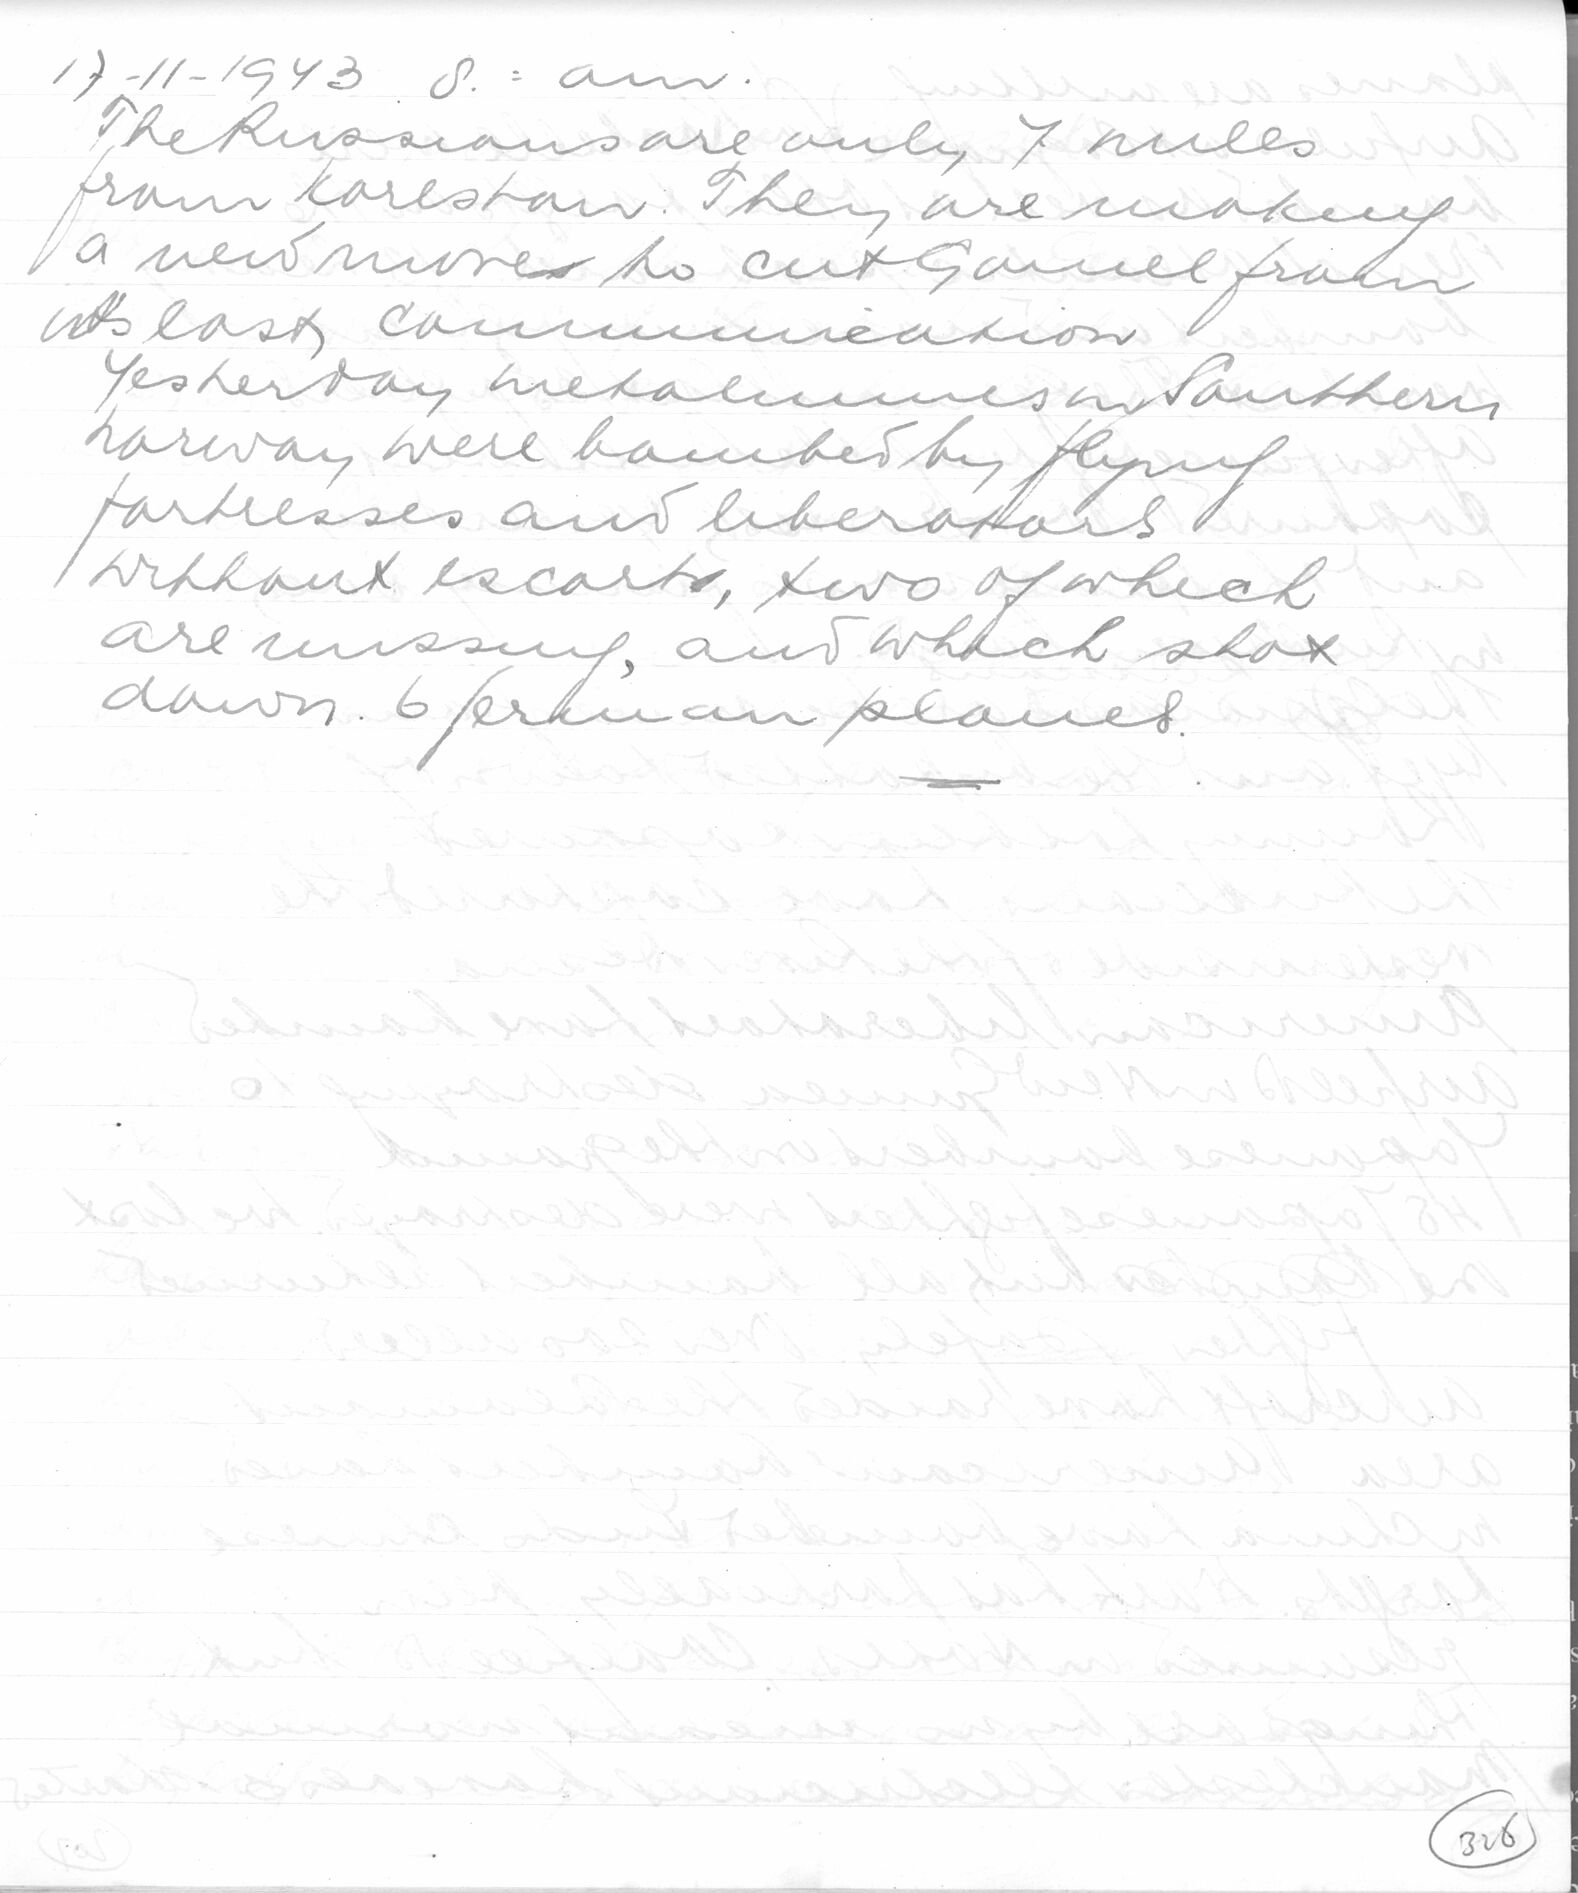 17-11-1943 8.= am.
The Russians are only 7 miles
from Korestow. They are making
a new move to cut Gomel from
its last communication
Yesterday metalmines in Southern
norway were bombed by flying
fortresses and liberators
without escort, two of which
are missing, and which shot
down. 6 german planes.
326